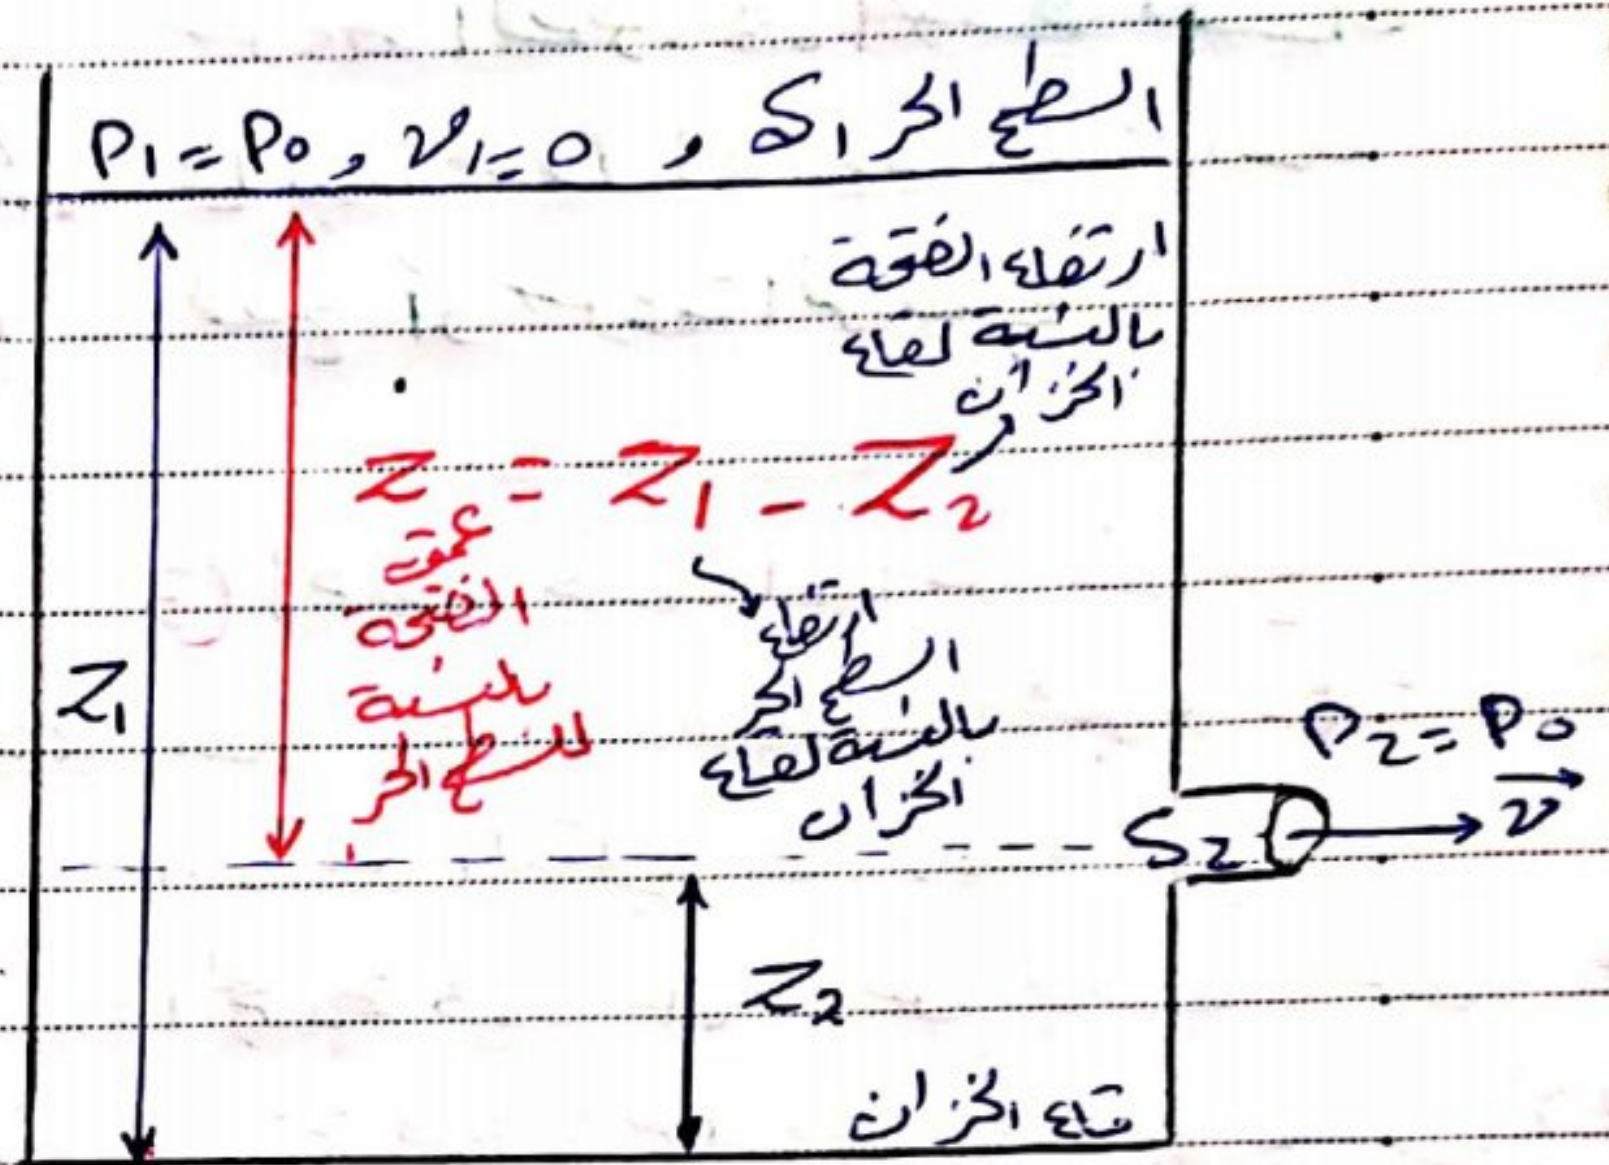 السطح الحر S₁ , v₁ = 0 , P₁ = P₀
ارتفاع الفتحة
بالنسبة لقاع
الخزان
Z = Z₁ - Z₂
عمق
الفتحة
بالنسبة
للسطح الحر
ارتفاع
السطح الحر
بالنسبة لقاع
الخزان
Z₁
P₂ = P₀
S₂
v
Z₂
قاع الخزان